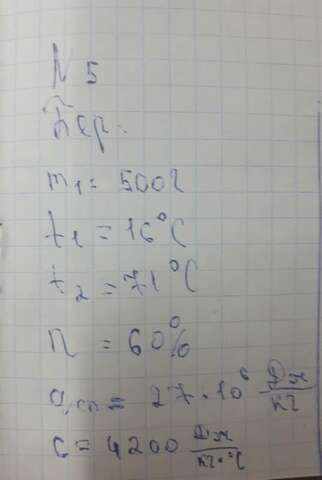 N 5
Бер.
m₁ = 500г
t₁ = 16°C
t₂ = 71°C
η = 60%
qсп = 27·10⁶ Дж/кг
c = 4200 Дж/кг·°C